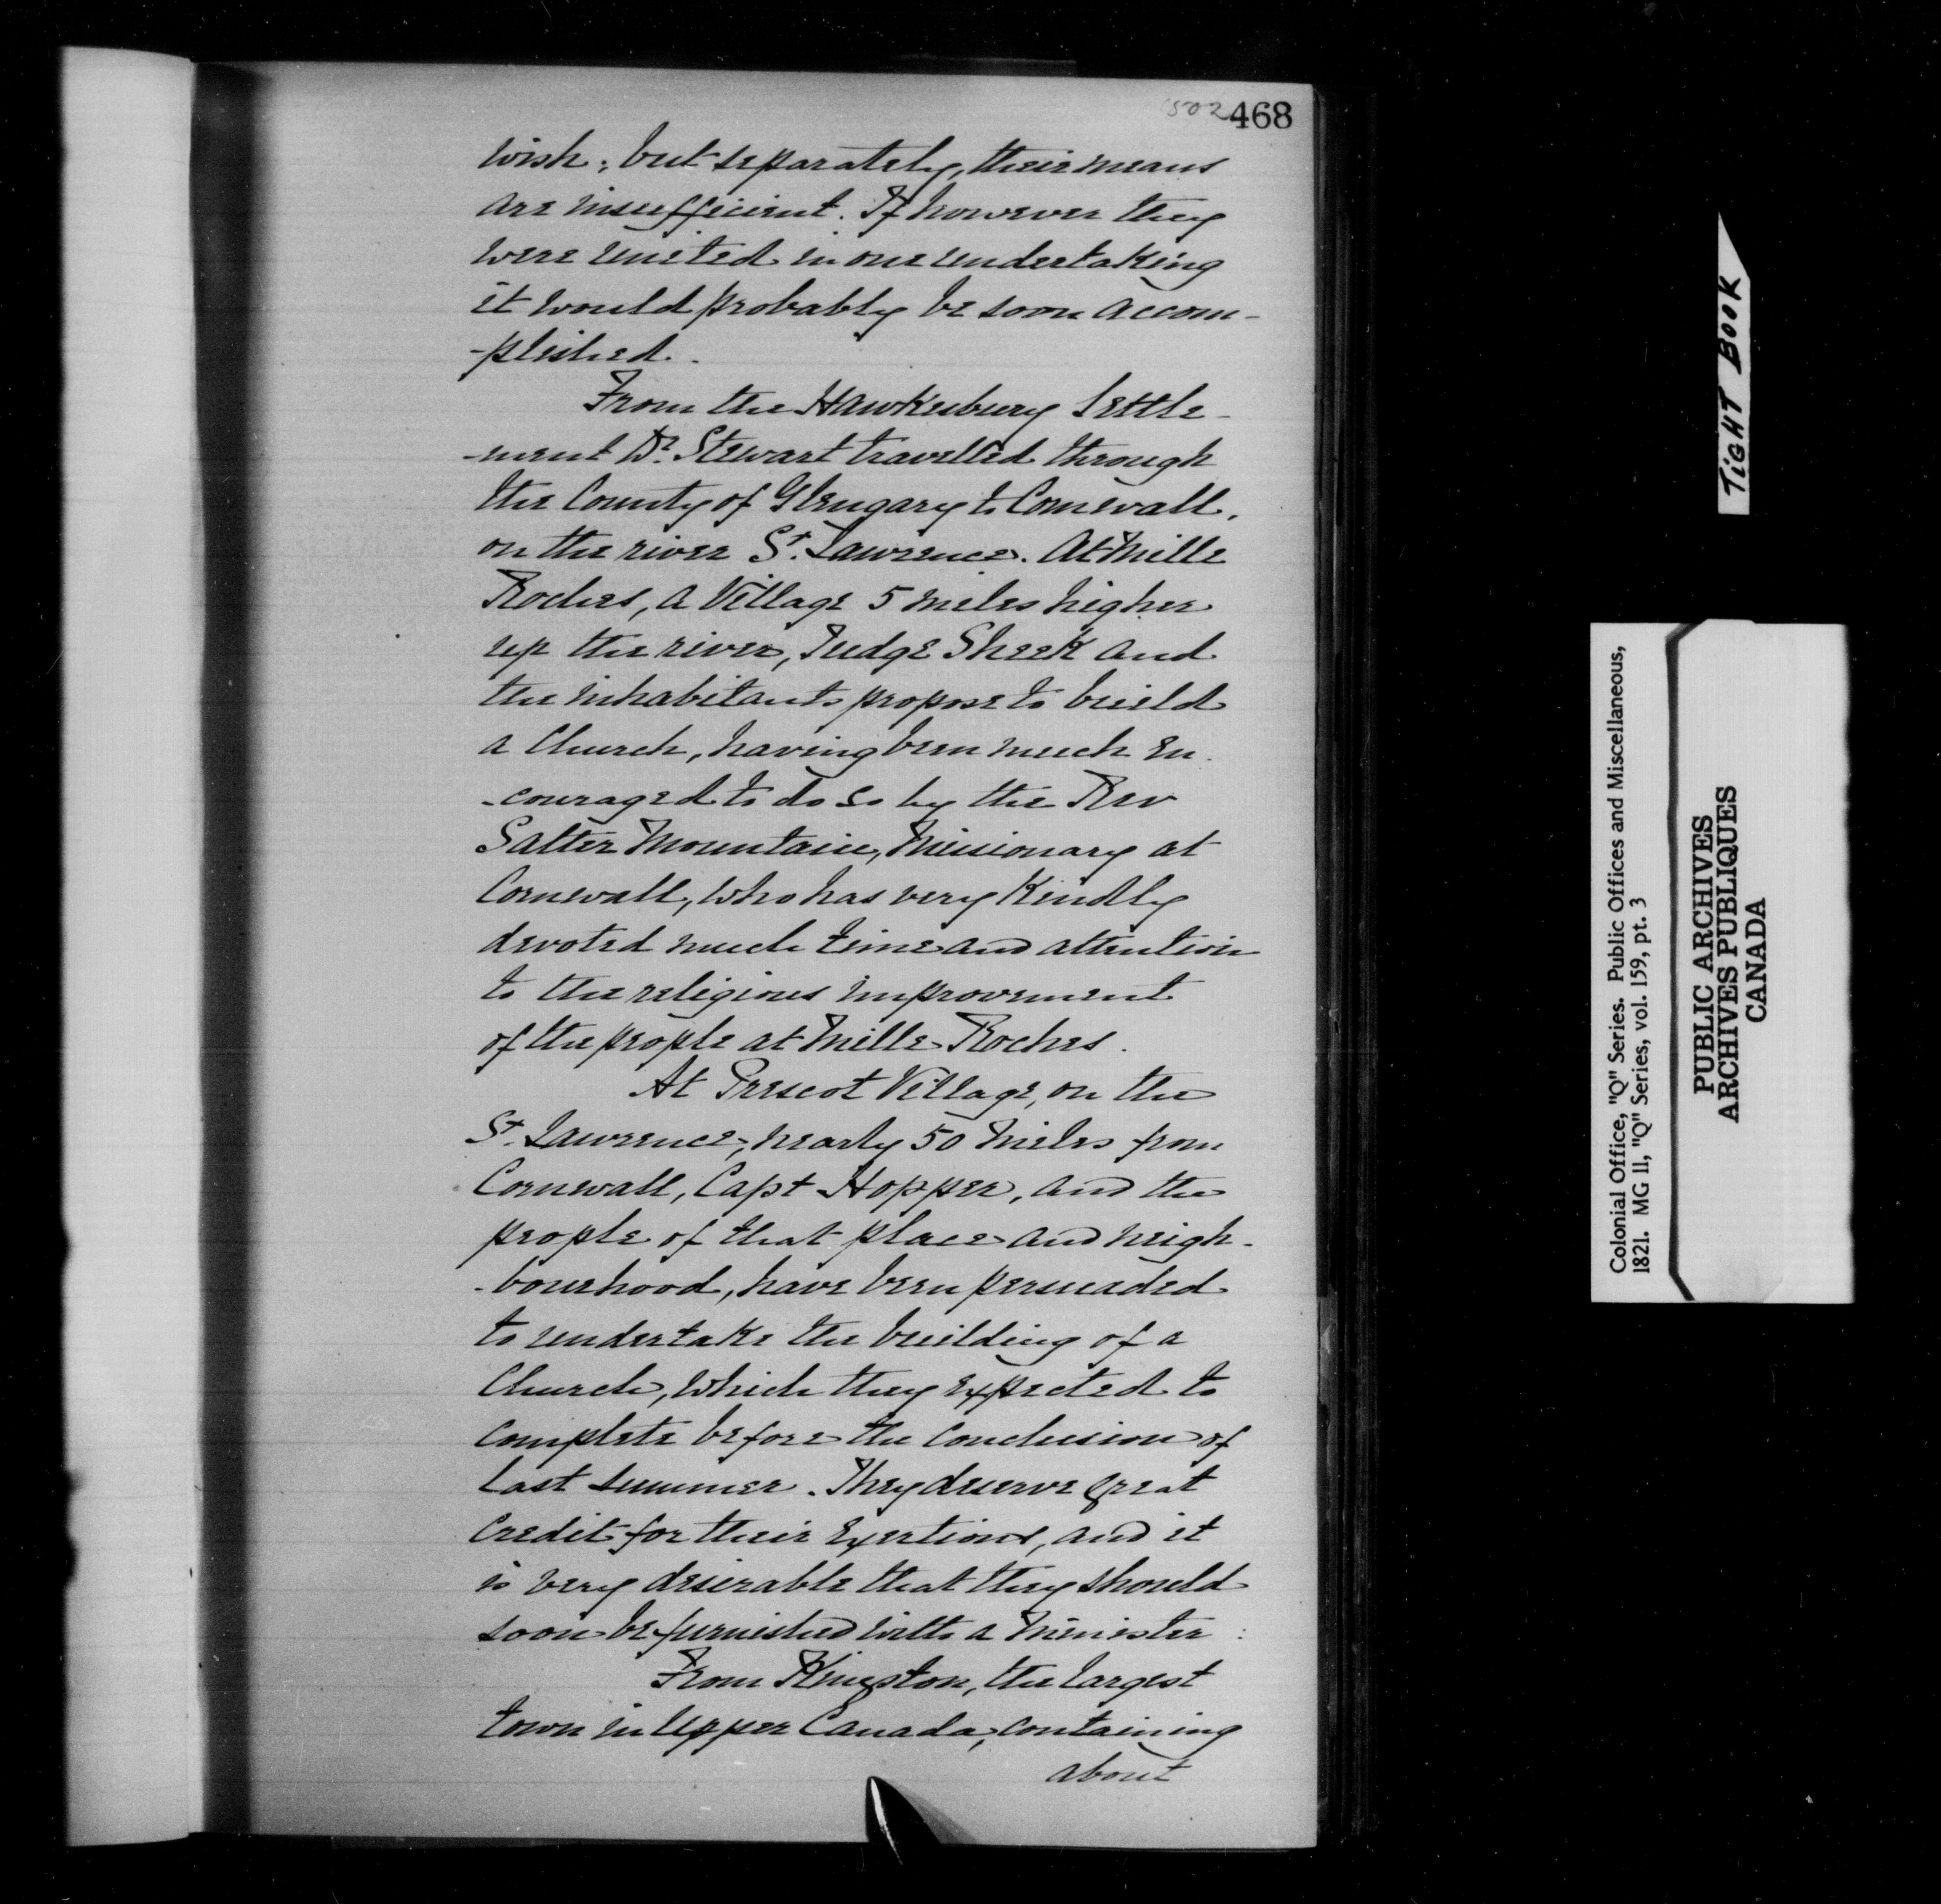 502 468
wish; but separately, their means
are insufficient. If however they
were united in one undertaking
it would probably be soon accom-
-plished.
From the Hawkesbury Settle-
-ment Dr. Stewart travelled through
the County of Glengary to Cornwall,
on the river St. Lawrence. At Mille
Roches, a Village 5 miles higher
up the river, Judge Sheek and
the inhabitants propose to build
a Church, having been much en-
-couraged to do so by the Rev
Salter Mountain, Missionary at
Cornwall, who has very kindly
devoted much time and attention
to the religious improvement
of the people at Mille Roches.
At Prescot Village, on the
St. Lawrence, nearly 50 miles from
Cornwall, Capt Hopper, and the
people of that place and neigh-
-bourhood, have been persuaded
to undertake the building of a
Church, which they expected to
complete before the conclusion of
last summer. They deserve great
credit for their exertions, and it
is very desirable that they should
soon be furnished with a Minister:
From Kingston, the largest
town in Upper Canada, containing
about
TIGHT BOOK
Colonial Office, "Q" Series. Public Offices and Miscellaneous,
1821. MG 11, "Q" Series, vol. 159, pt. 3
PUBLIC ARCHIVES
ARCHIVES PUBLIQUES
CANADA